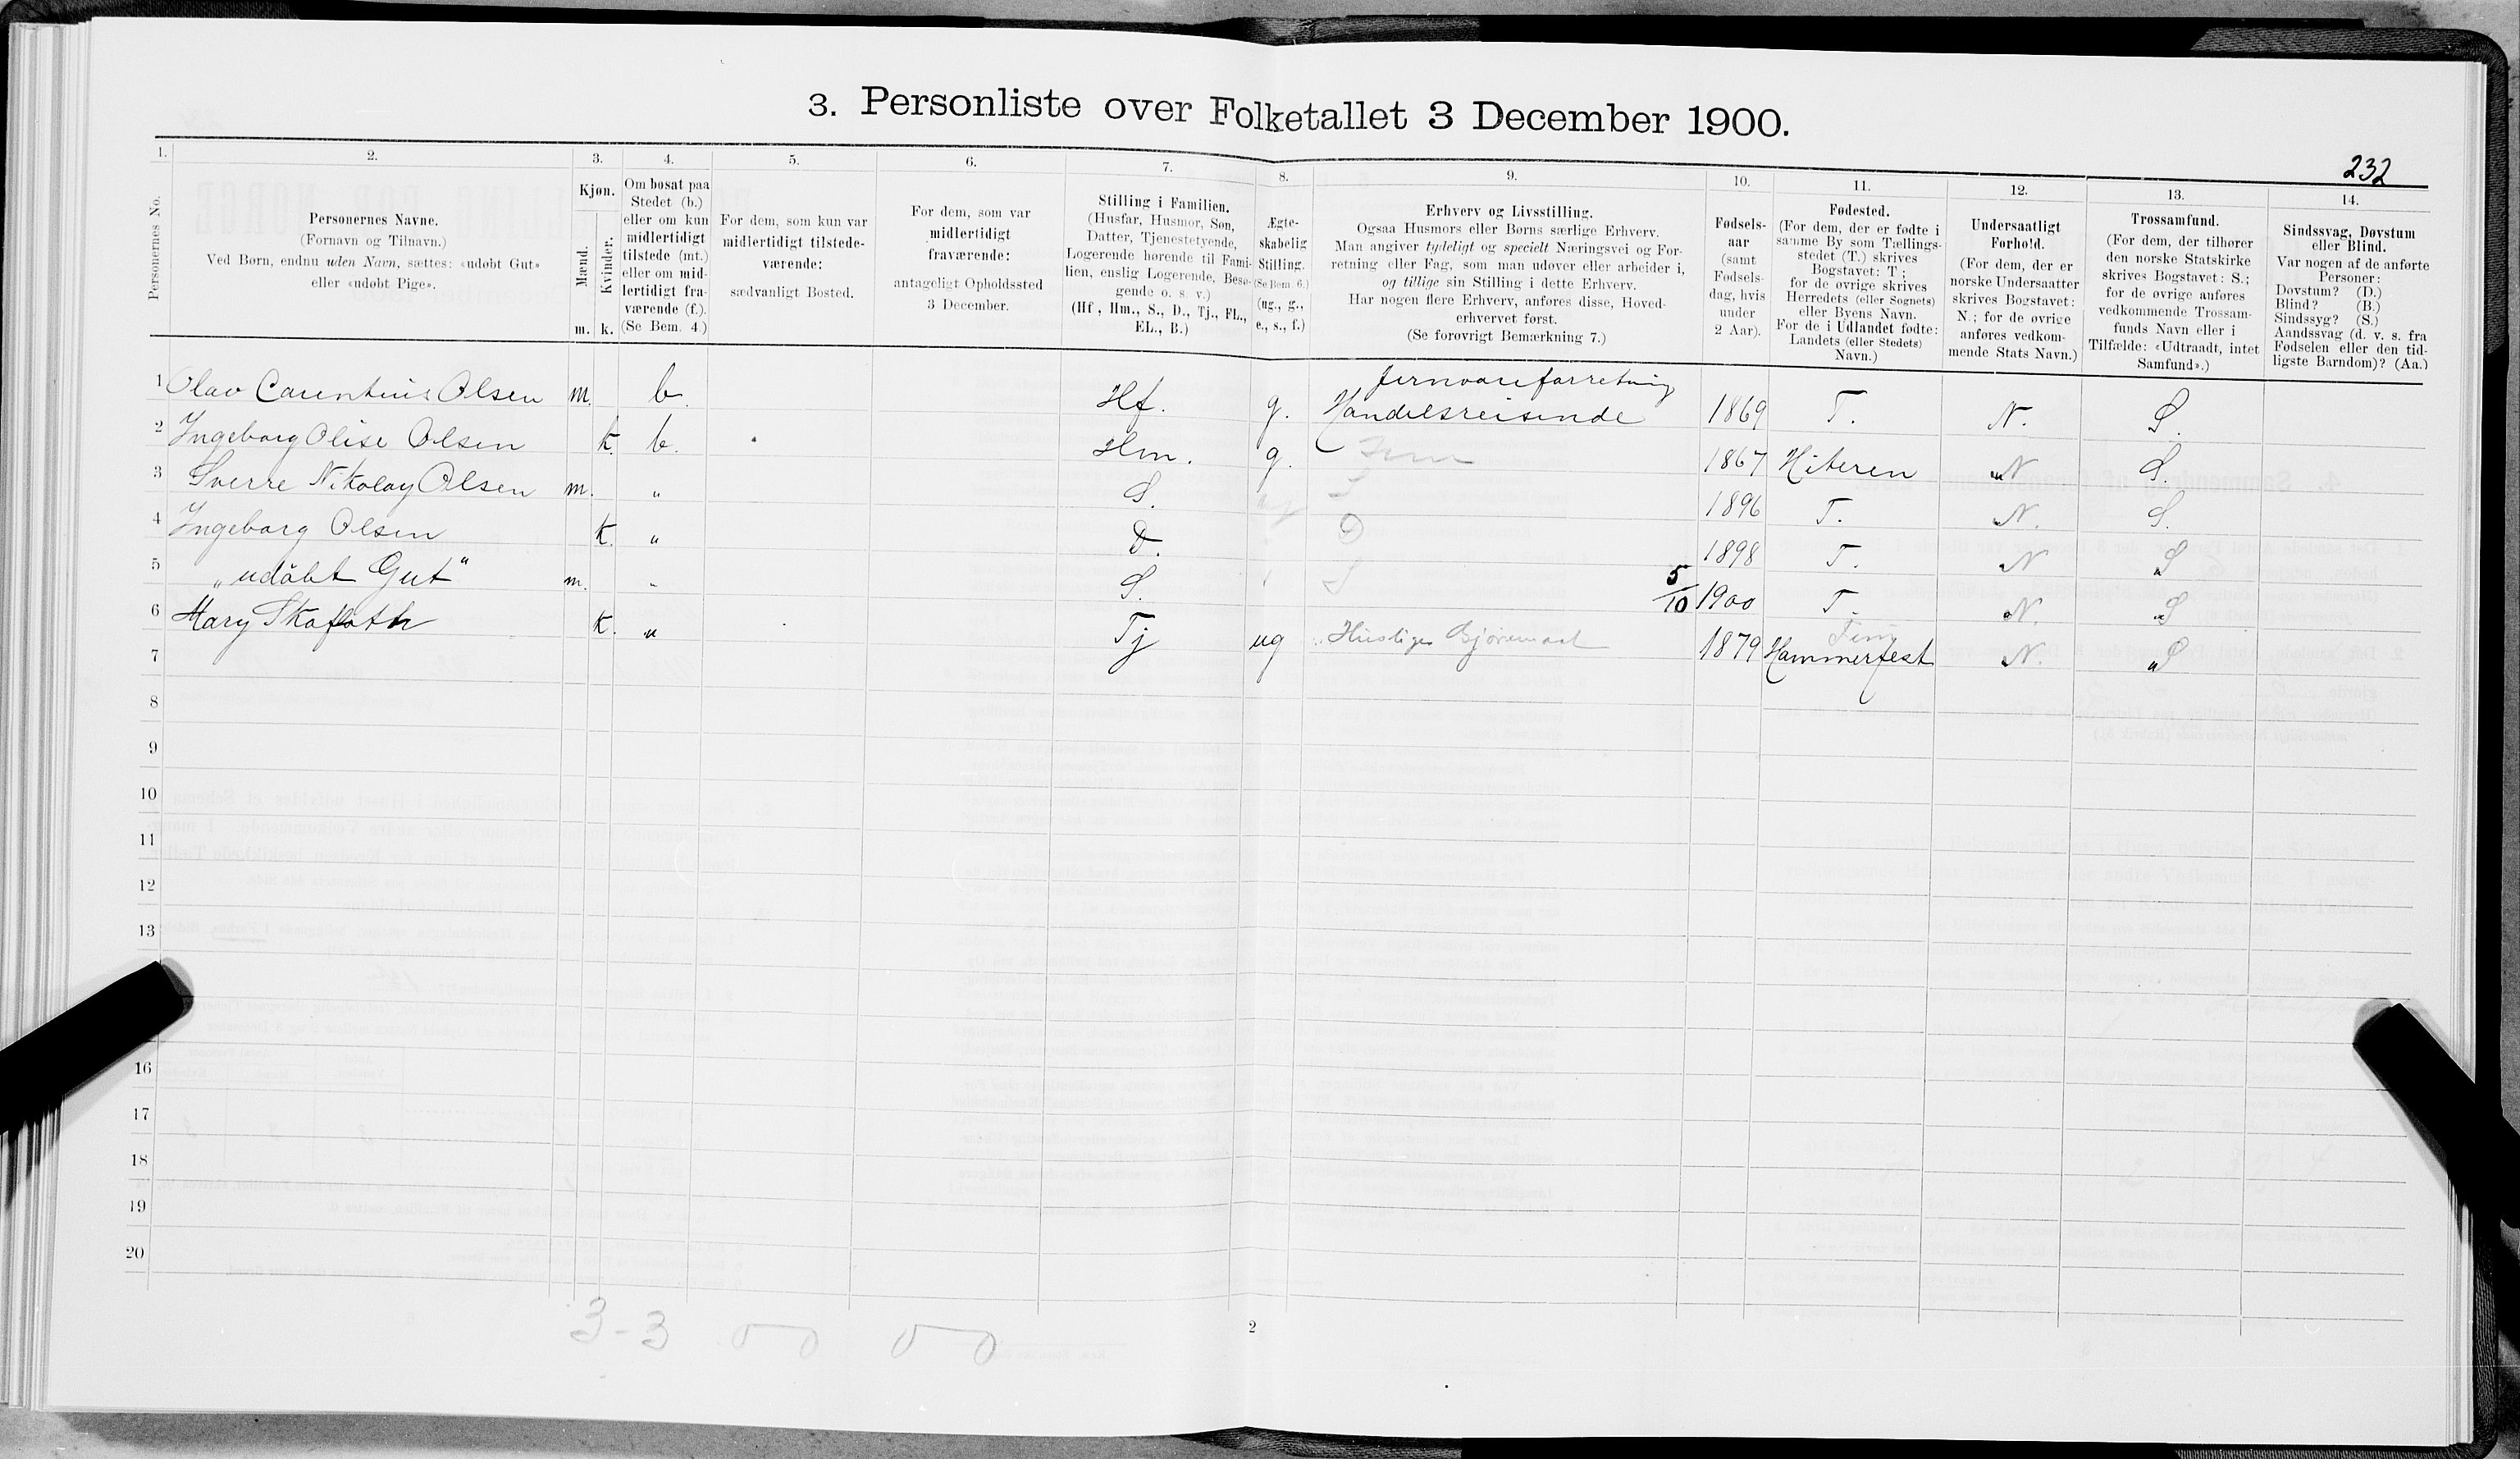 3. Personliste over Folketallet 3 December 1900.
232
1. 2. 3. 4. 5. 6. 7. 8. 9. 10. 11. 12. 13. 14.
Personernes No.
Personernes Navne.
(Fornavn og Tilnavn.)
Ved Børn, endnu uden Navn, sættes: «udøbt Gut»
eller «udøbt Pige».
Kjøn.
Mænd.
Kvinder.
m. k.
Om bosat paa
Stedet (b.)
eller om kun
midlertidigt
tilstede (mt.)
eller om mid-
lertidigt fra-
værende (f.).
(Se Bem. 4.)
For dem, som kun var
midlertidigt tilstede-
værende:
sædvanligt Bosted.
For dem, som var
midlertidigt
fraværende:
antageligt Opholdssted
3 December.
Stilling i Familien.
(Husfar, Husmor, Søn,
Datter, Tjenestetyende,
Logerende hørende til Fami-
lien, enslig Logerende, Besø-
gende o. s. v.)
(Hf., Hm., S., D., Tj., FL.,
EL., B.)
Ægte-
skabelig
Stilling.
(Se Bem. 6.)
(ug., g.,
e., s., f.)
Erhverv og Livsstilling.
Ogsaa Husmors eller Børns særlige Erhverv.
Man angiver tydeligt og specielt Næringsvei og For-
retning eller Fag, som man udøver eller arbeider i,
og tillige sin Stilling i dette Erhverv.
Har nogen flere Erhverv, anføres disse, Hoved-
erhvervet først.
(Se forøvrigt Bemærkning 7.)
Fødsels-
aar
(samt
Fødsels-
dag, hvis
under
2 Aar).
Fødested.
(For dem, der er fødte i
samme By som Tællings-
stedet (T.) skrives
Bogstavet: T;
for de øvrige skrives
Herredets (eller Sognets)
eller Byens Navn.
For de i Udlandet fødte:
Landets (eller Stedets)
Navn.)
Undersaatligt
Forhold.
(For dem, der er
norske Undersaatter
skrives Bogstavet:
N.; for de øvrige
anføres vedkom-
mende Stats Navn.)
Trossamfund.
(For dem, der tilhører
den norske Statskirke
skrives Bogstavet: S.;
for de øvrige anføres
vedkommende Trossam-
funds Navn eller i
Tilfælde: «Udtraadt, intet
Samfund».)
Sindssvag, Døvstum
eller Blind.
Var nogen af de anførte
Personer:
Døvstum? (D.)
Blind? (B.)
Sindssyg? (S.)
Aandssvag (d. v. s. fra
Fødselen eller den tid-
ligste Barndom)? (Aa.)
jernvareforretning
1 Olav Carentius Olsen m. b. Hf. g. Handelsreisende 1869 T. N. S.
2 Ingeborg Olise Olsen k. b. Hm. g. 1867 Hiteren N S.
3 Sverre Nikolay Olsen m. " S. ug S 1896 T. N. S.
4 Ingeborg Olsen k. " D. D 1898 T. N S
5 "udøbt Gut" m. " S. S 5/10 1900 T. N. S
6 Mary k. " Tj ug 1879 Hammerfest N. S
7
8
9
10
11
12
13
16
17
18
19
20
3-3 0 0 0 0
2